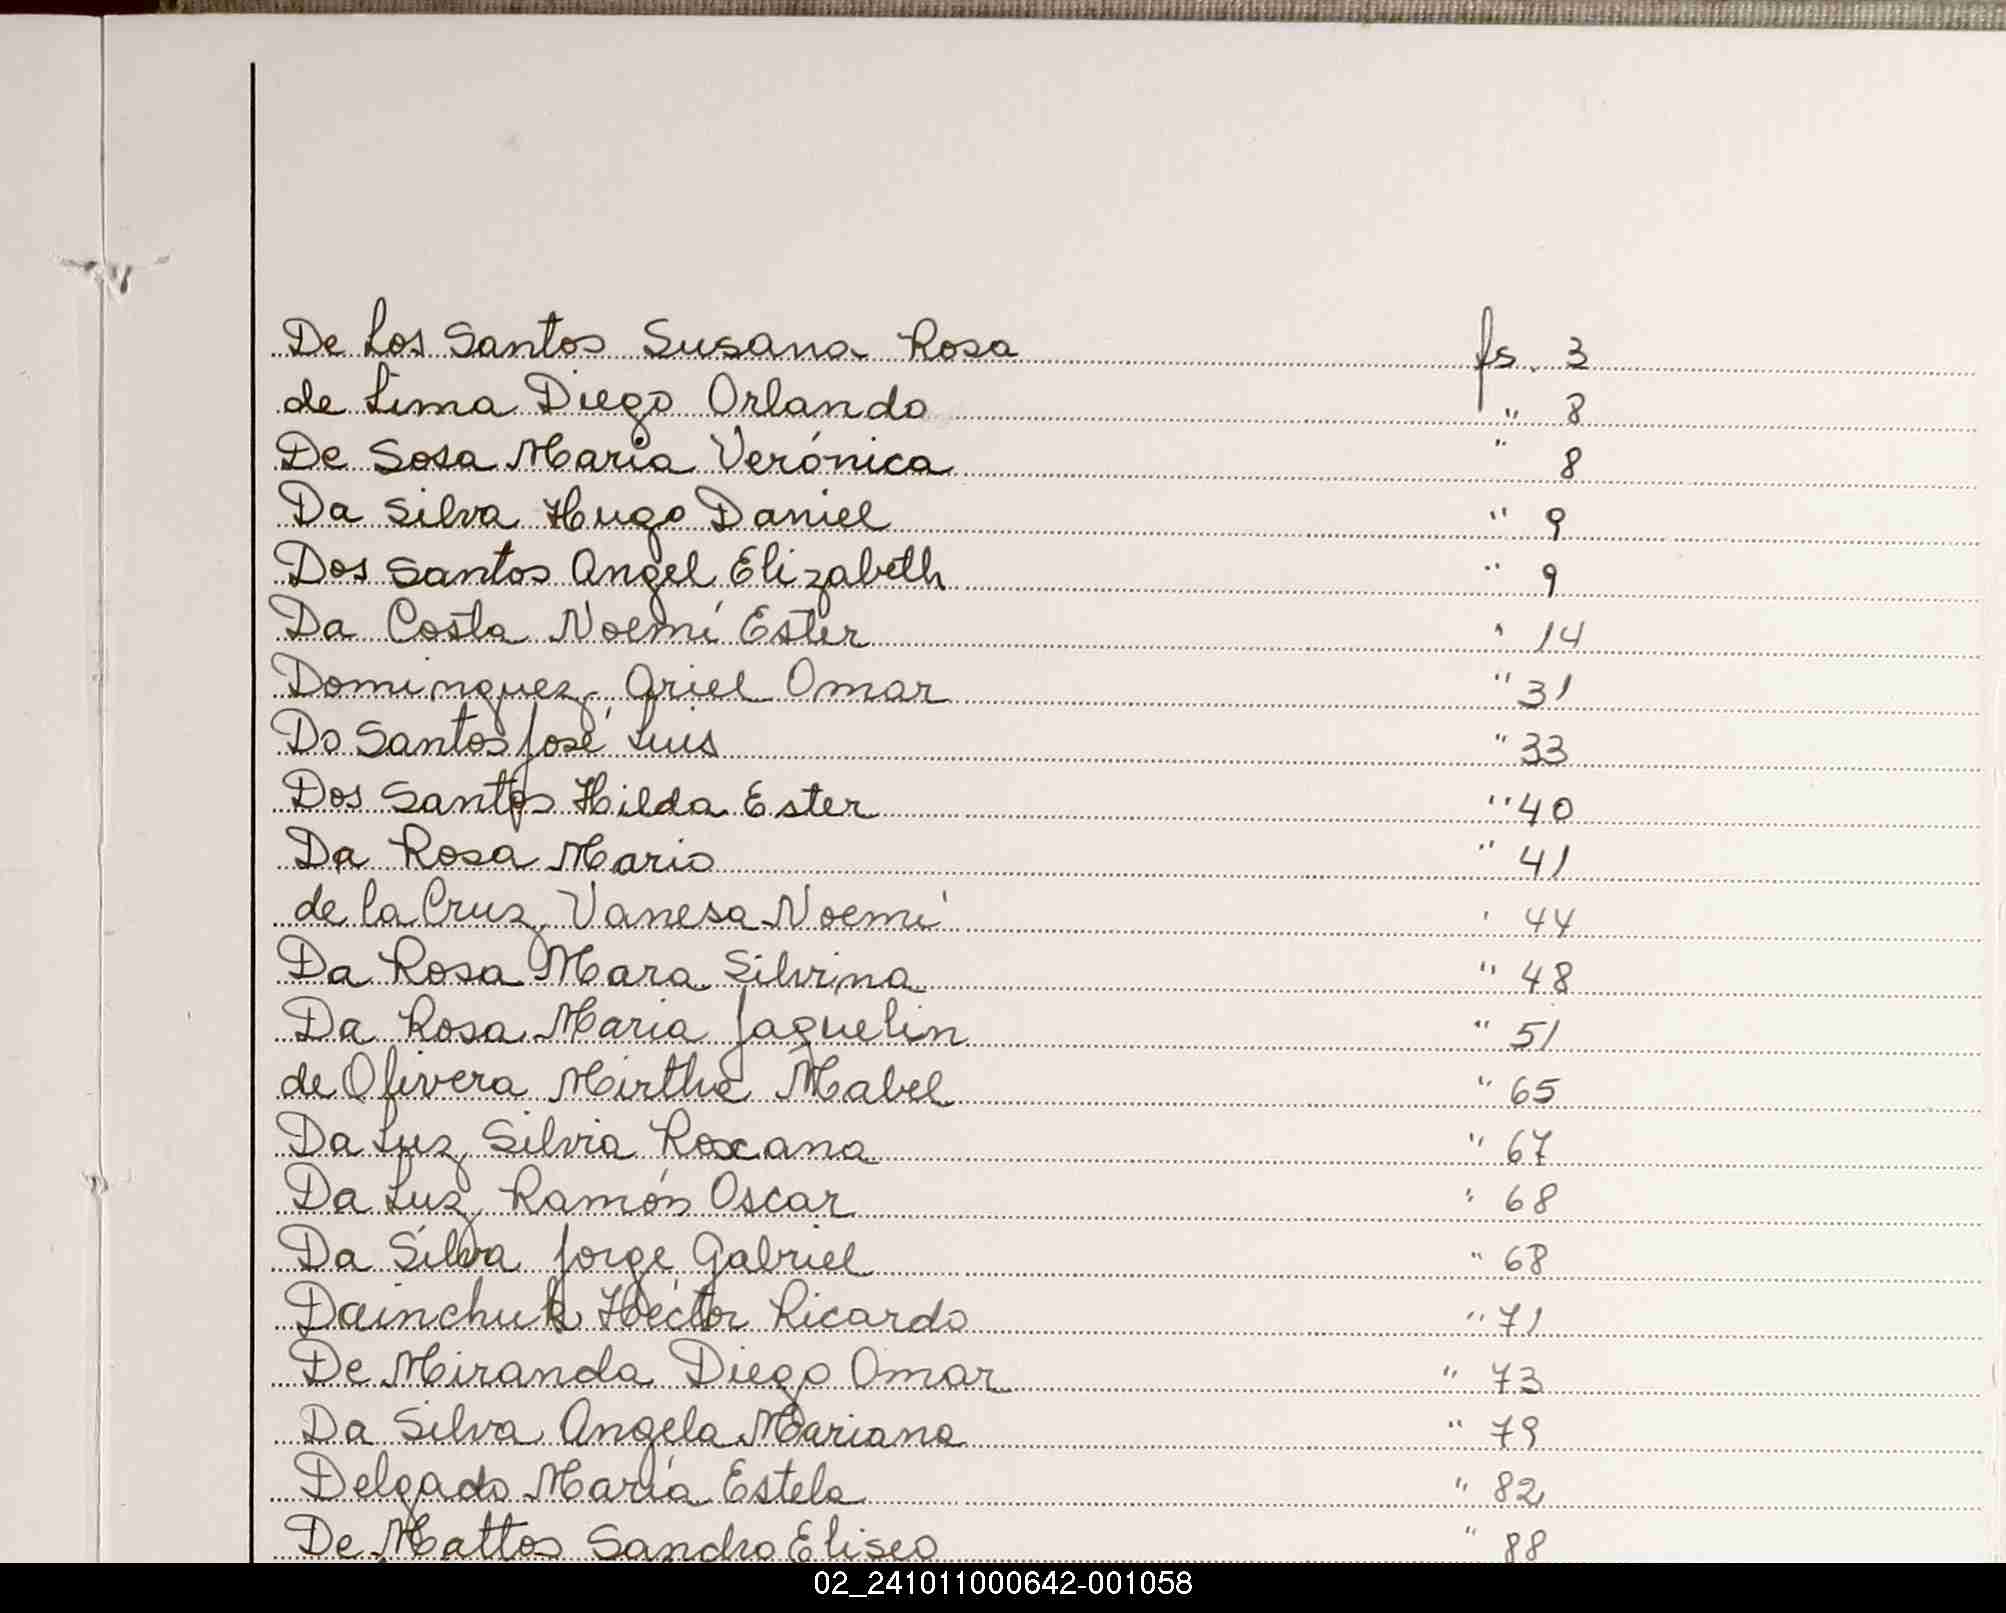 De Los Santos Susana Rosa fs. 3
de Lima Diego Orlando " 8
De Sosa Maria Verónica " 8
Da Silva Hugo Daniel " 9
Dos Santos Angel Elizabeth " 9
Da Costa Noemí Ester " 14
Dominguez Ariel Omar " 31
Do Santos José Luis " 33
Dos Santos Hilda Ester " 40
Da Rosa Mario " 41
de la Cruz Vanesa Noemí " 44
Da Rosa Mara Silvina " 48
Da Rosa Maria Jaquelin " 51
de Olivera Mirtha Mabel " 65
Da Luz Silvia Roxana " 67
Da Luz Ramón Oscar " 68
Da Silva Jorge Gabriel " 68
Dainchuk Héctor Ricardo " 71
De Miranda Diego Omar " 73
Da Silva Angela Mariana " 79
Delgado María Estela " 82
De Mattos Sandro Eliseo " 88
02_241011000642-001058